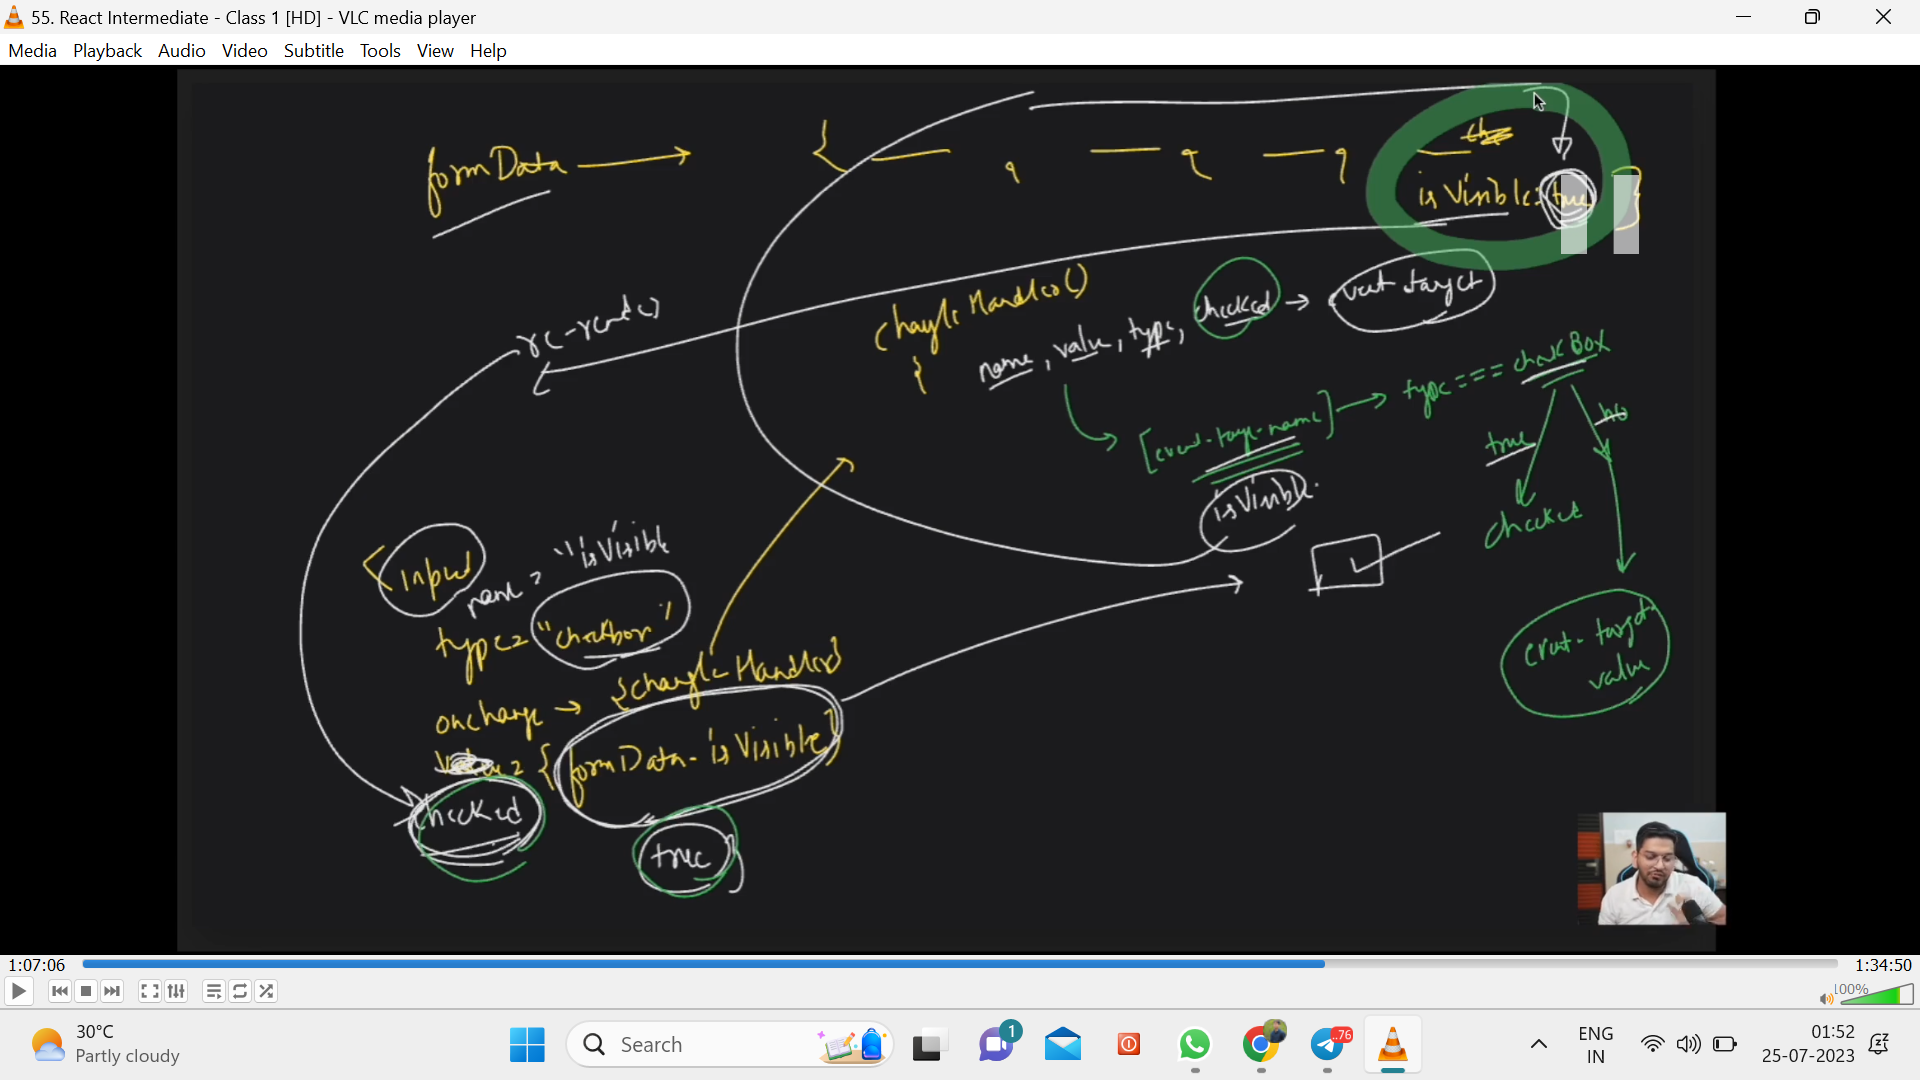 55. React Intermediate - Class 1 [HD] - VLC media player
Media Playback Audio Video Subtitle Tools View Help
formData → { , , , isVisible: true }
changeHandler()
{
name, value, type, checked → event.target
re-render
[event.target.name] → type === checkBox
true no
isVisible
checked
event.target
value
<input
name = "isVisible
type = "checkbox"
onchange → {changeHandler}
= {formData.isVisible}
checked
true
1:07:06 1:34:50
100%
30°C
Partly cloudy
Search
1
.76
ENG
IN
01:52
25-07-2023